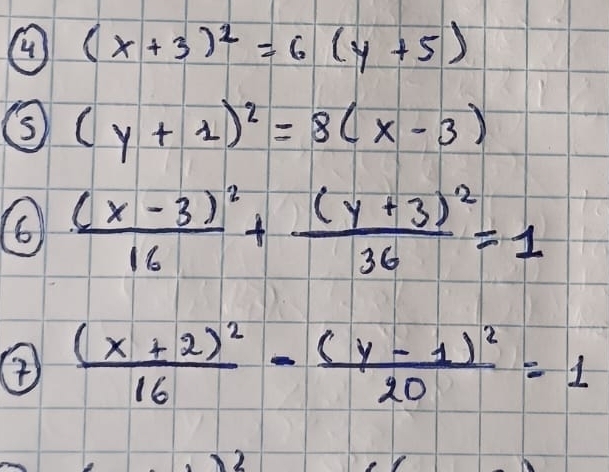 ④ (x+3)² = 6 (y+5)
⑤ (y+1)² = 8(x-3)
⑥ (x-3)²/16 + (y+3)²/36 = 1
⑦ (x+2)²/16 - (y-1)²/20 = 1